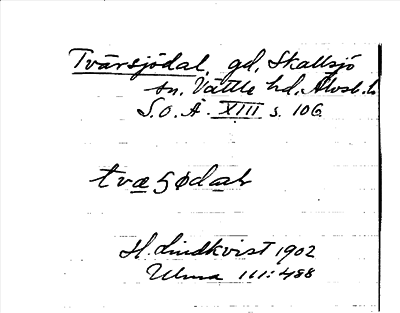 Tvärsjödal, gd, Skallsjö
sn. Vättle hd, Älvsb. l.
S.O.Ä. XIII s. 106
H. Lindkvist 1902
Ulma 111:488